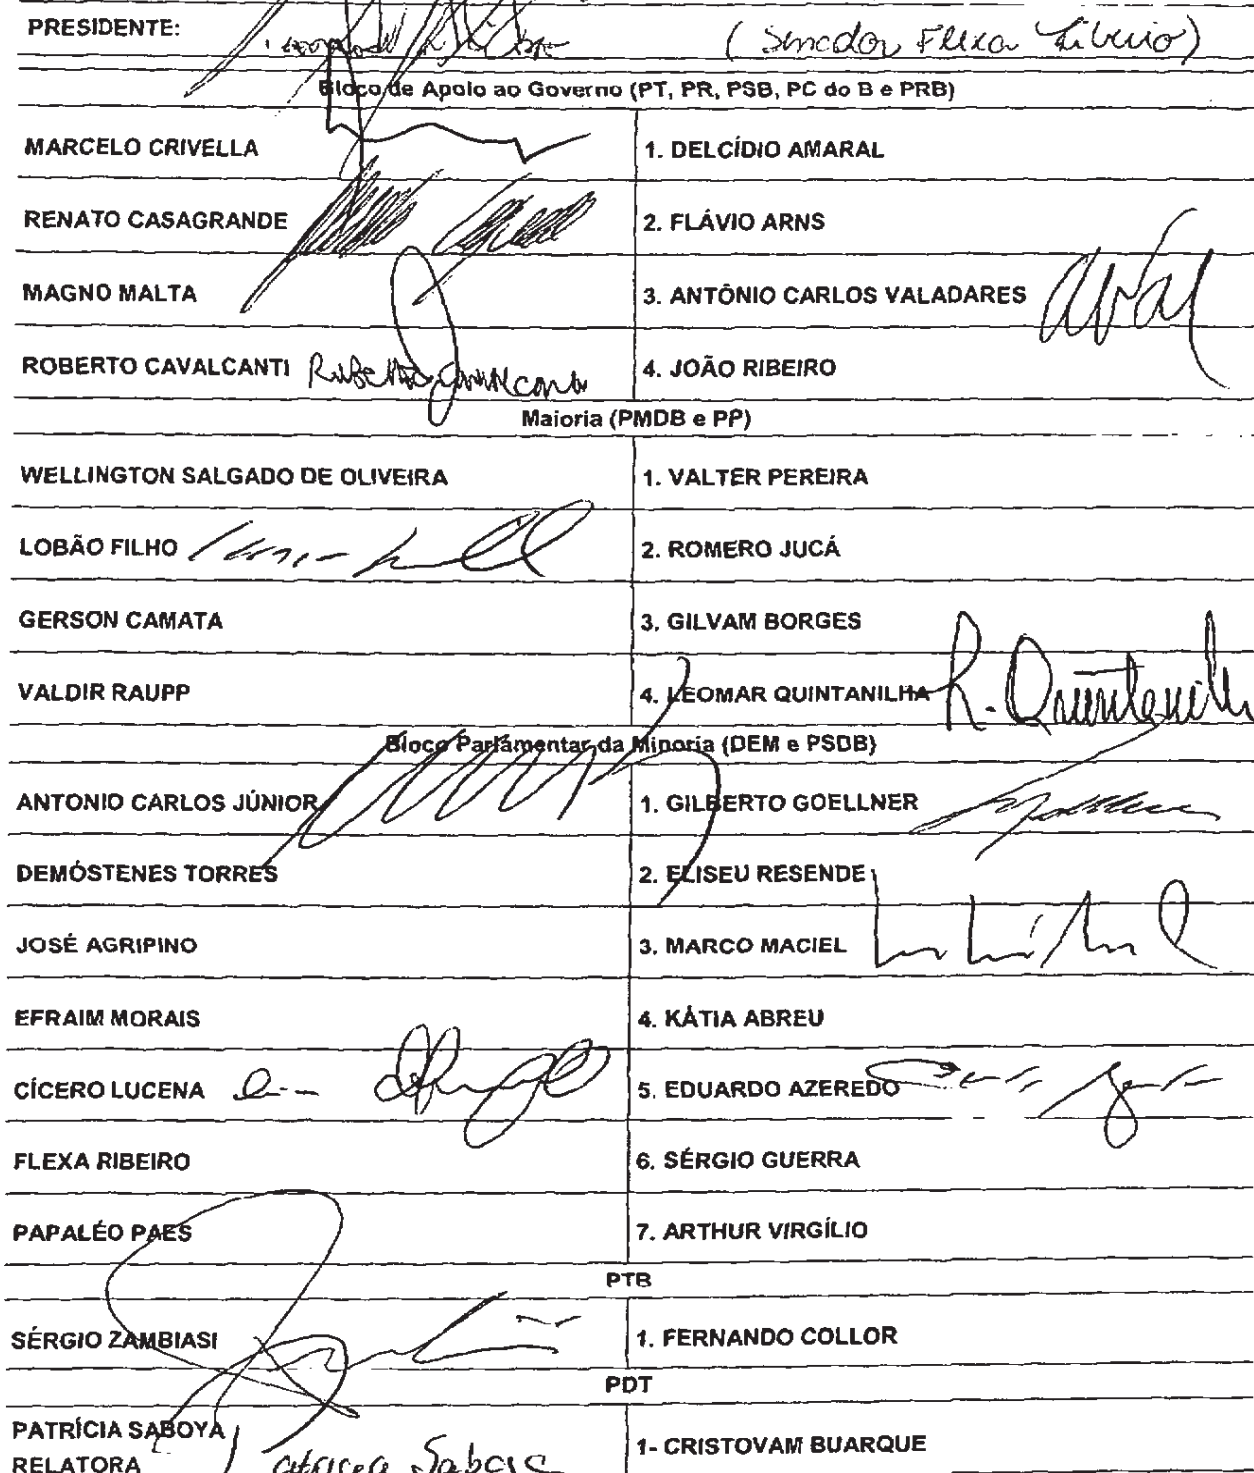 PRESIDENTE: (Senador Flexa Ribeiro)
Bloco de Apoio ao Governo (PT, PR, PSB, PC do B e PRB)
MARCELO CRIVELLA 1. DELCÍDIO AMARAL
RENATO CASAGRANDE 2. FLÁVIO ARNS
MAGNO MALTA 3. ANTÔNIO CARLOS VALADARES
ROBERTO CAVALCANTI Roberto Cavalcanti 4. JOÃO RIBEIRO
Maioria (PMDB e PP)
WELLINGTON SALGADO DE OLIVEIRA 1. VALTER PEREIRA
LOBÃO FILHO 2. ROMERO JUCÁ
GERSON CAMATA 3. GILVAM BORGES
VALDIR RAUPP 4. LEOMAR QUINTANILHA R. Quintanilha
Bloco Parlamentar da Minoria (DEM e PSDB)
ANTONIO CARLOS JÚNIOR 1. GILBERTO GOELLNER
DEMÓSTENES TORRES 2. ELISEU RESENDE
JOSÉ AGRIPINO 3. MARCO MACIEL
EFRAIM MORAIS 4. KÁTIA ABREU
CÍCERO LUCENA 5. EDUARDO AZEREDO
FLEXA RIBEIRO 6. SÉRGIO GUERRA
PAPALÉO PAES 7. ARTHUR VIRGÍLIO
PTB
SÉRGIO ZAMBIASI 1. FERNANDO COLLOR
PDT
PATRÍCIA SABOYA 1- CRISTOVAM BUARQUE
RELATORA Patrícia Saboya